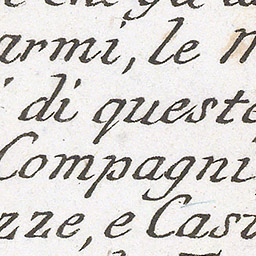 armi, le
i di queste
Compagni
zze, e Cast